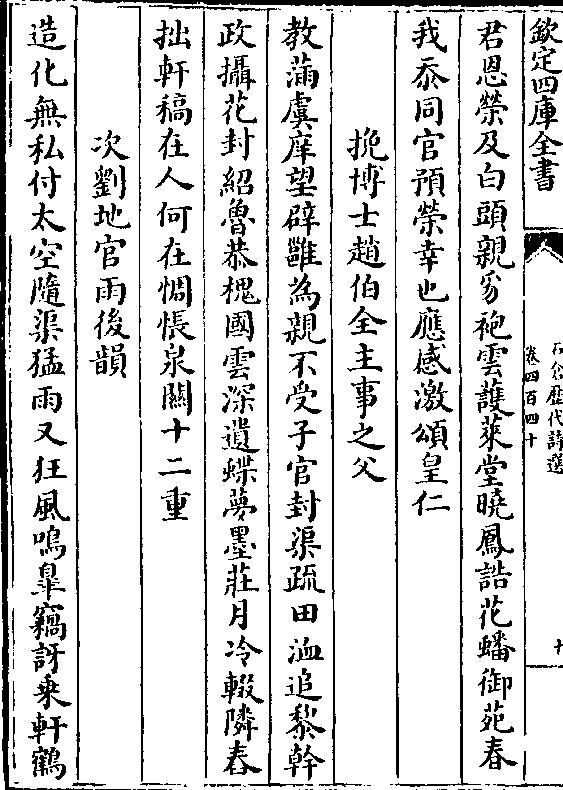 欽定四庫全書
石倉歷代詩選
卷四百四十
十
君恩榮及白頭親豸袍雲護萊堂曉鳳誥花蟠御苑春
我忝同官預榮幸也應感激頌皇仁
挽博士趙伯全主事之父
教滿虞庠望辟雝為親不受子官封渠疏田洫追黎幹
政攝花封紹魯恭槐國雲深遺蝶夢墨莊月冷輟隣舂
拙軒稿在人何在惆悵泉關十二重
次劉地官雨後韻
造化無私付太空隨渠猛雨又狂風鳴皋竊訝乘軒鶴